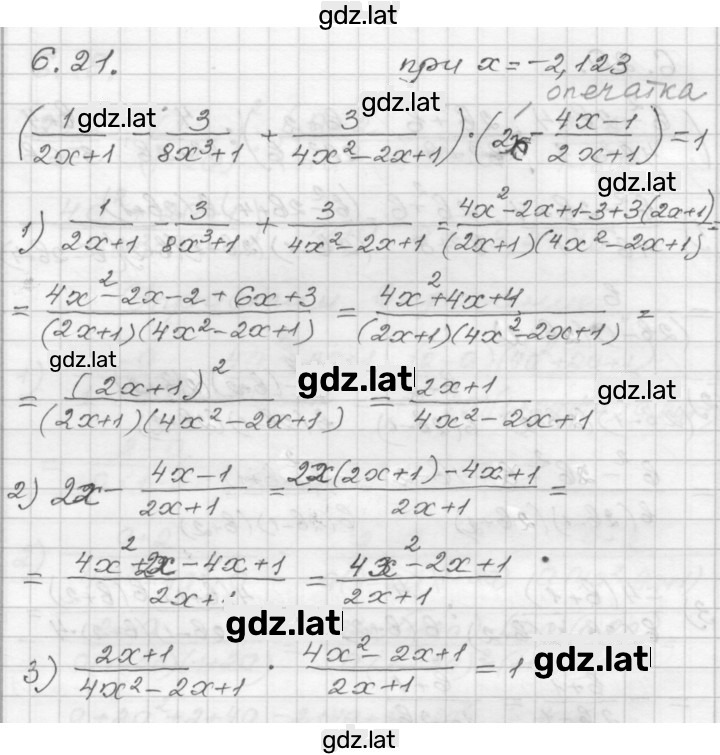 gdz.lat
6.21. при x = -2,123
опечатка
(1/(2x+1) - 3/(8x³+1) + 3/(4x²-2x+1)) · (2x - (4x-1)/(2x+1)) = 1
gdz.lat gdz.lat
gdz.lat
1) 1/(2x+1) - 3/(8x³+1) + 3/(4x²-2x+1) = (4x²-2x+1-3+3(2x+1))/((2x+1)(4x²-2x+1)) =
= (4x²-2x-2+6x+3)/((2x+1)(4x²-2x+1)) = (4x²+4x+4)/((2x+1)(4x²-2x+1)) =
gdz.lat gdz.lat gdz.lat
= (2x+1)²/((2x+1)(4x²-2x+1)) = (2x+1)/(4x²-2x+1)
2) 2x - (4x-1)/(2x+1) = (2x(2x+1)-4x+1)/(2x+1) =
= (4x²+2x-4x+1)/(2x+1) = (4x²-2x+1)/(2x+1)
gdz.lat
3) (2x+1)/(4x²-2x+1) · (4x²-2x+1)/(2x+1) = 1
gdz.lat
gdz.lat